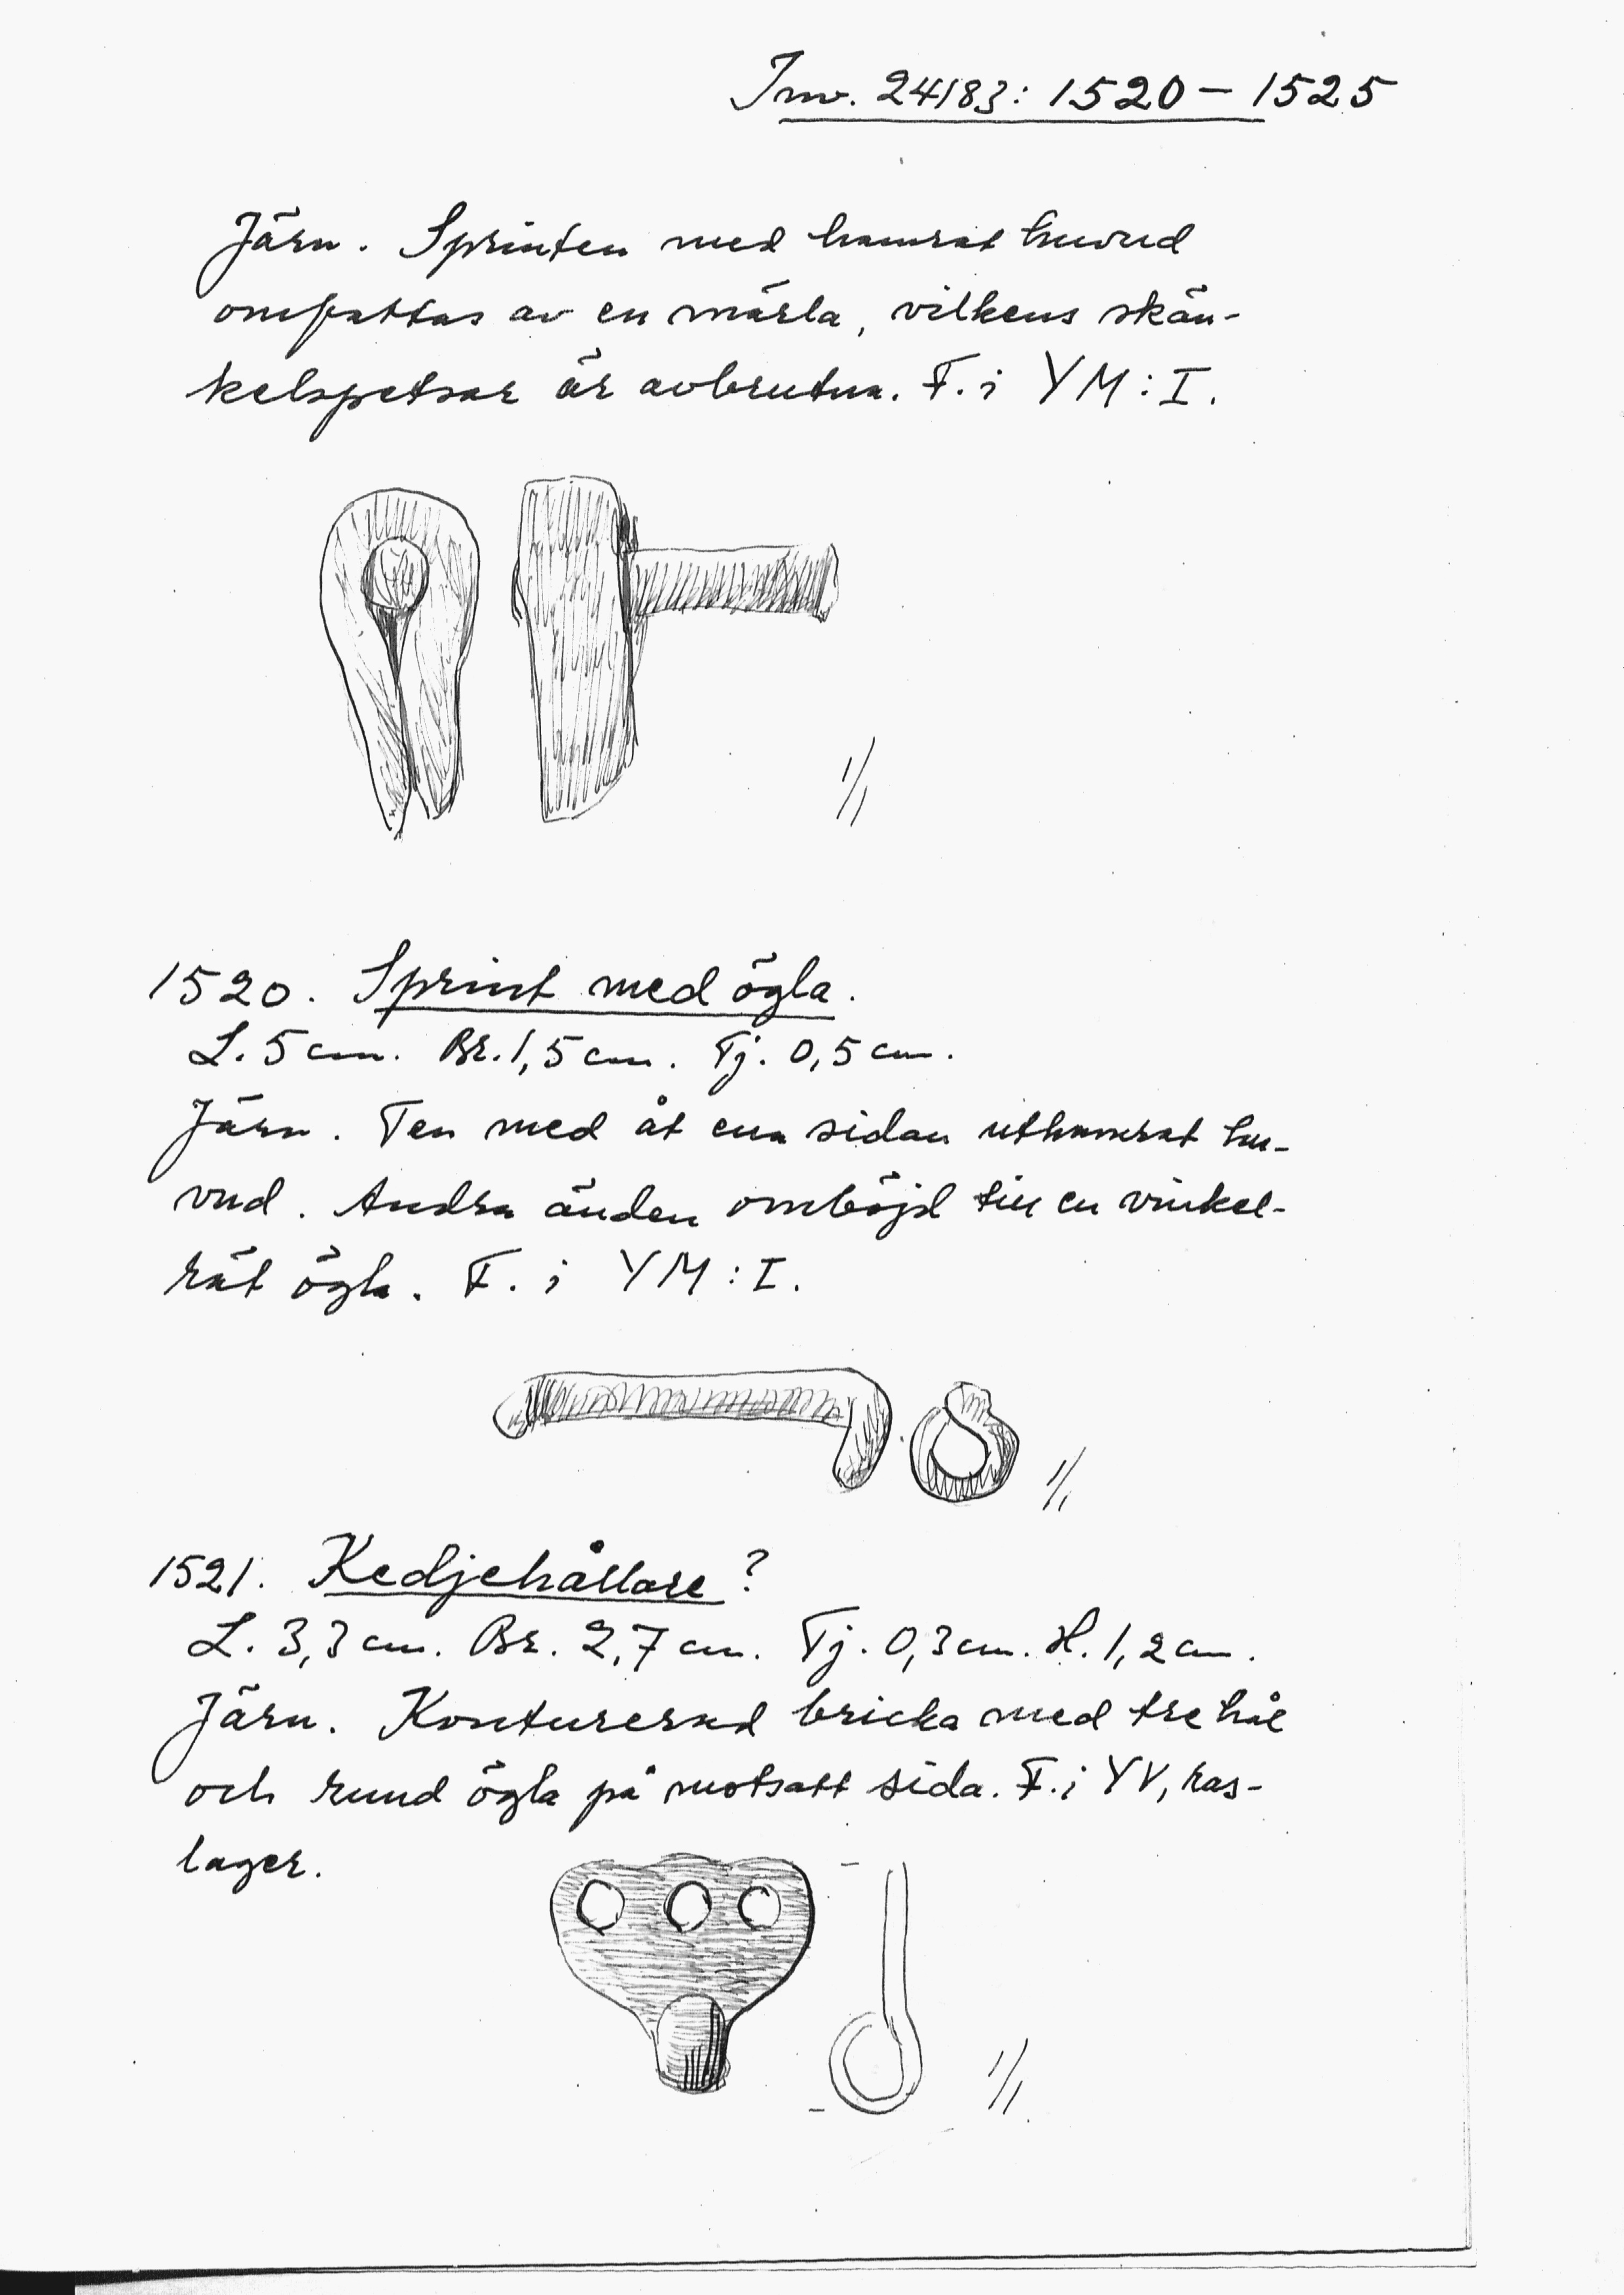 Inv. 24183: 1520 – 1525
Järn. Sprinten med hamrat huvud
omfattas av en märla, vilkens skän-
kelspetsar är avbrutna. F. i YM:I.
1/1
1520. Sprint med ögla.
L. 5 cm. Br. 1,5 cm. Tj. 0,5 cm.
Järn. Ten med åt ena sidan uthamrat hu-
vud. Andra änden omböjd till en vinkel-
rät ögla. F. i YM:I.
1/1
1521. Kedjehållare?
L. 3,3 cm. Br. 2,7 cm. Tj. 0,3 cm. H. 1,2 cm.
Järn. Konturerad bricka med tre hål
och rund ögla på motsatt sida. F. i YV, ras-
lager.
1/1